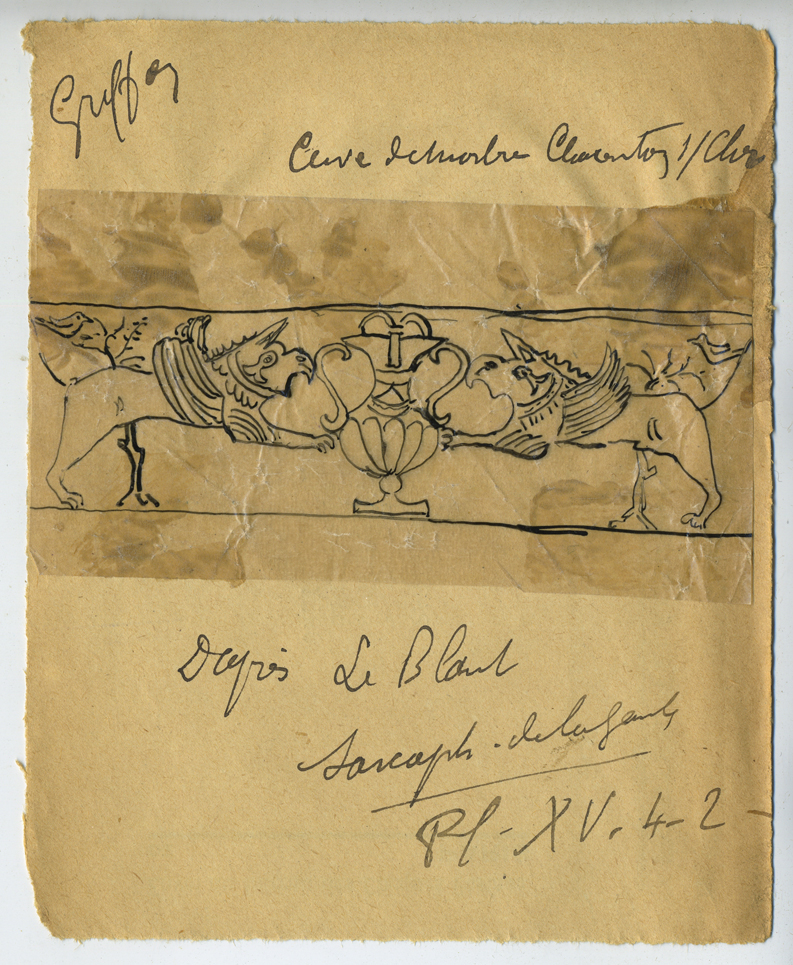 Griffon
Cuve de marbre Charenton s/Cher
D'après Le Blant
Sarcoph. de la Gaule
Pl - XV. 4-2 -